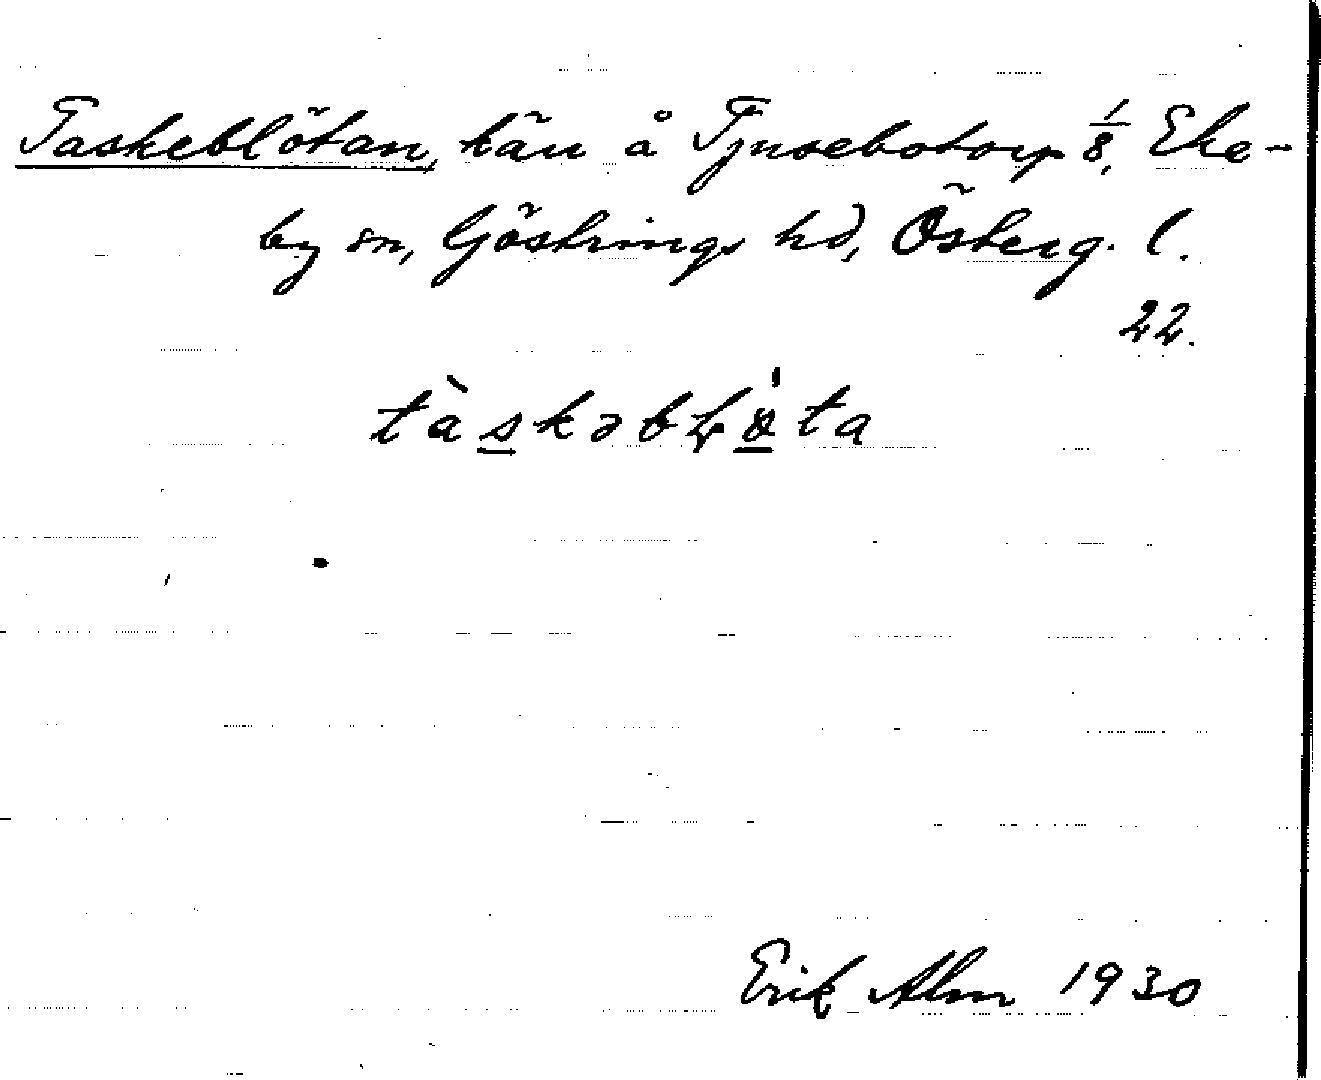 Taskeblötan, tän å Tjusebotorp 1/8, Eke-
by sn, Göstrings hd, Österg. l.
22.
tàskəbḷọ̈ta
Erik Alm 1930